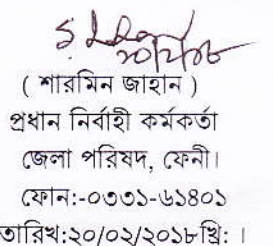 ( শারমিন জাহান )
প্রধান নির্বাহী কর্মকর্তা
জেলা পরিষদ, ফেনী।
ফোন:-০৩৩১-৬১৪০১
তারিখ:২০/০২/২০১৮খ্রি: ।